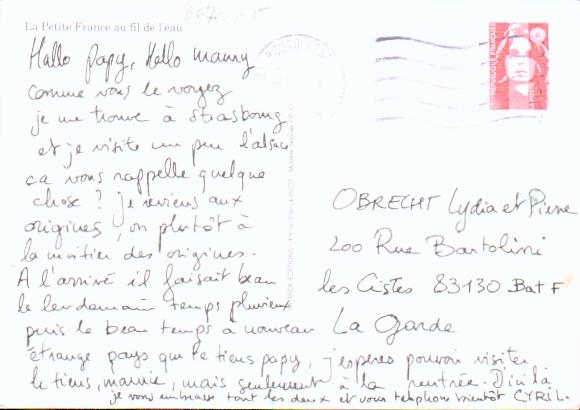 La Petite France au fil de l'eau
Hallo papy, Hello mamy
comme vous le voyez
je me trouve à Strasbourg
et je visite un peu l'alsace
ça vous rappelle quelque
chose ? je reviens aux
origines, on plutôt à
la moitier des origines.
A l'arrivé il faisait beau
le lendemain temps pluvieux
puis le beau temps à nouveau
étrange pays que le tiens papy, j'espères pouvoir visiter
le tiens, mamie, mais seulement à la rentrée. D'ici là
je vous embrasse tout les deux et vous telephons bientôt CYRIL.
OBRECHT Lydia et Pierre
200 Rue Bartolini
les Cistes 83130 Bat F
La Garde
REPUBLIQUE FRANÇAISE